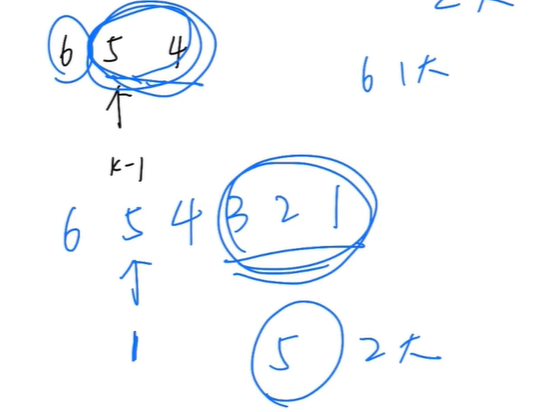 2大
6 5 4
6 1大
k-1
6 5 4 3 2 1
1
5 2大